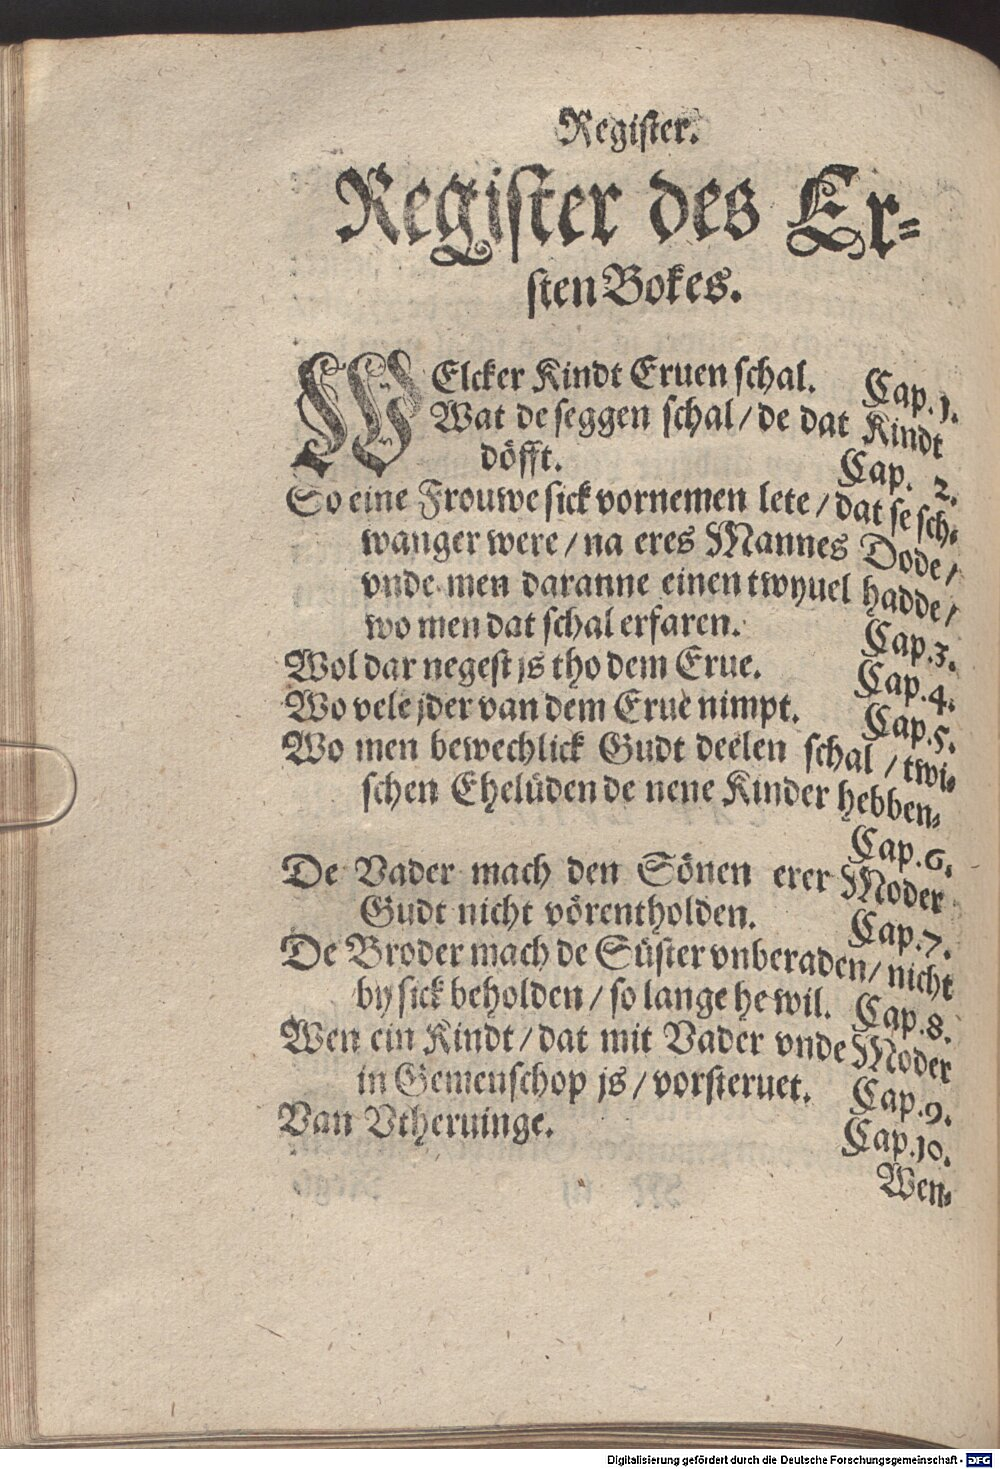 Register.
Register des Er-
sten Bokes.
WElcker Kindt Eruen schal. Cap.1.
Wat de seggen schal/de dat Kindt
döfft. Cap. 2.
So eine Frouwe sick vornemen lete/dat se sch-
wanger were/na eres Mannes Dode/
vnde men daranne einen twyuel hadde/
wo men dat schal erfaren. Cap.3.
Wol dar negest js tho dem Erue. Cap.4.
Wo vele jder van dem Erue nimpt. Cap.5.
Wo men bewechlick Gudt deelen schal/twi-
schen Ehelüden de nene Kinder hebben.
Cap.6.
De Vader mach den Sönen erer Moder
Gudt nicht vörentholden. Cap.7.
De Broder mach de Süster vnberaden/nicht
by sick beholden/so lange he wil. Cap.8.
Wen ein Kindt/dat mit Vader vnde Moder
in Gemenschop js/vorsteruet. Cap.9.
Van Vtheruinge. Cap.10.
Wen-
Digitalisierung gefördert durch die Deutsche Forschungsgemeinschaft - DFG